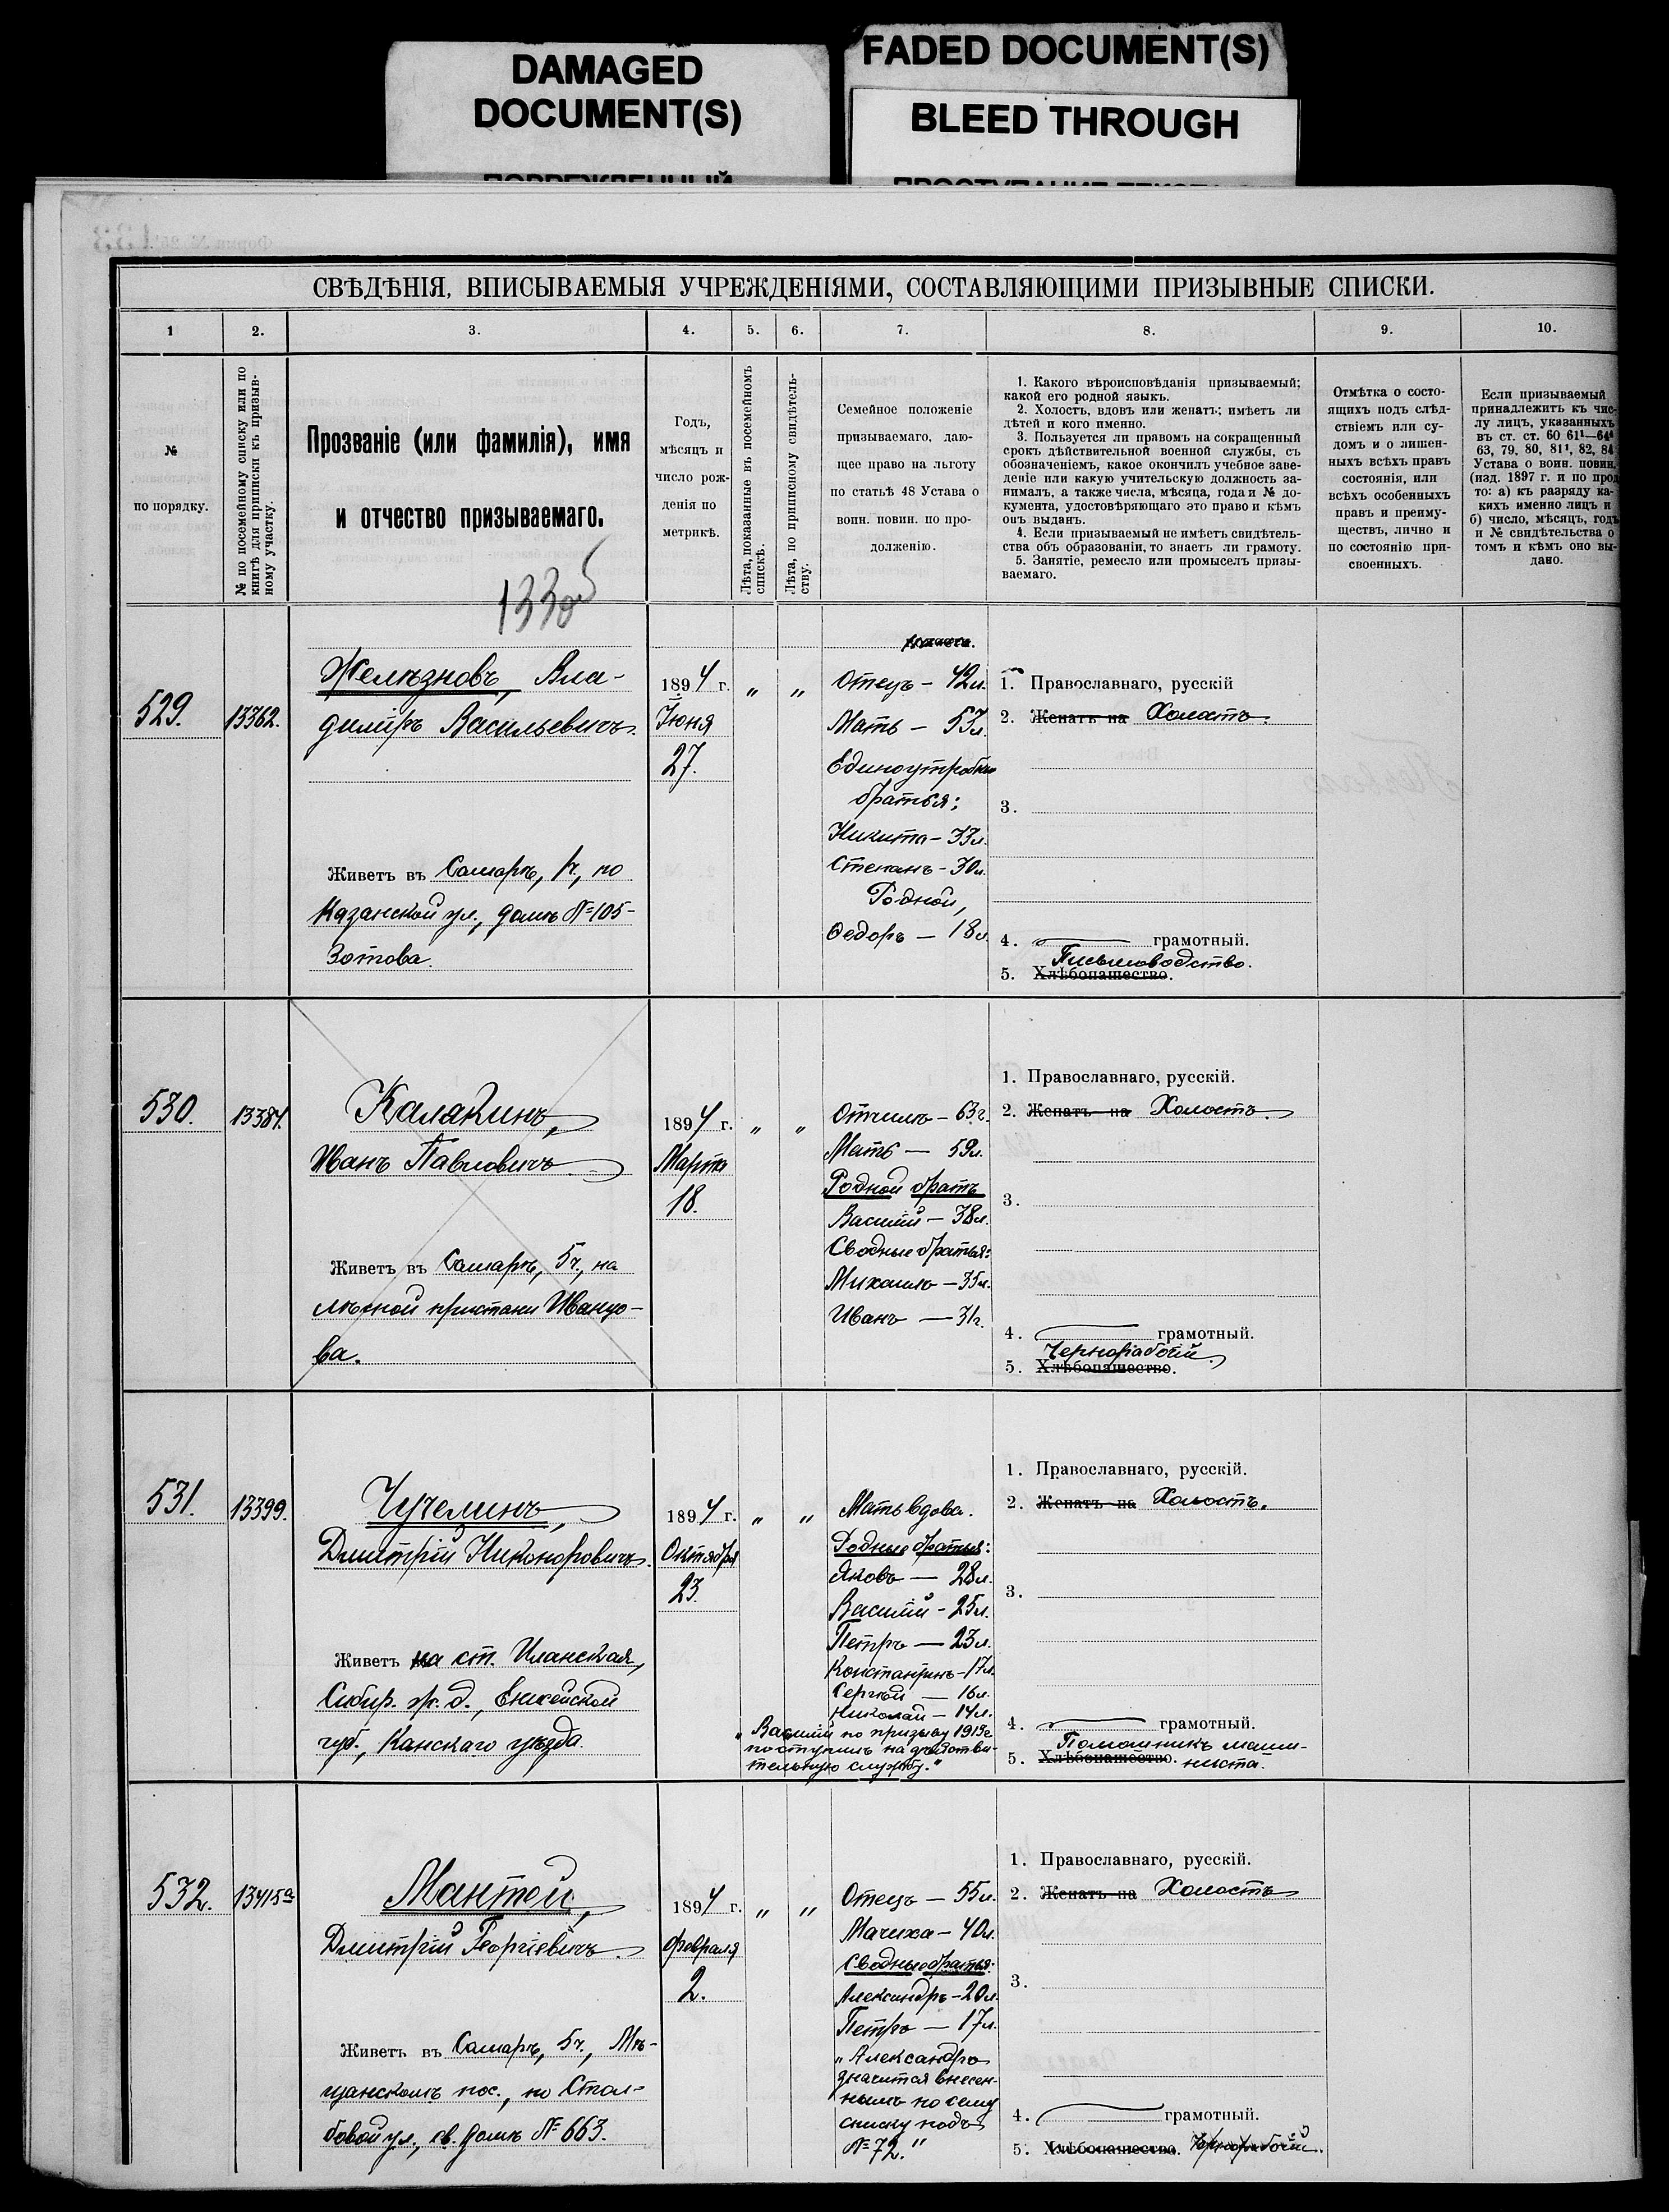 DAMAGED
DOCUMENT(S)
FADED DOCUMENT(S)
BLEED THROUGH
СВѢДѢНІЯ, ВПИСЫВАЕМЫЯ УЧРЕЖДЕНІЯМИ, СОСТАВЛЯЮЩИМИ ПРИЗЫВНЫЕ СПИСКИ.
1
2.
3.
4.
5.
6.
7.
8.
9.
10.
№
по порядку.
№ по посемейному списку или по
книгѣ для приписки къ призыв-
ному участку.
Прозваніе (или фамилія), имя
и отчество призываемаго.
Годъ,
мѣсяцъ и
число рож-
денія по
метрикѣ.
Лѣта, показанные въ посемейномъ
спискѣ.
Лѣта, по приписному свидѣтель-
ству.
Семейное положеніе
призываемаго, даю-
щее право на льготу
по статьѣ 48 Устава о
воин. повин. по про-
долженію.
1. Какого вѣроисповѣданія призываемый;
какой его родной языкъ.
2. Холостъ, вдовъ или женатъ; имѣетъ ли
дѣтей и кого именно.
3. Пользуется ли правомъ на сокращенный
срокъ дѣйствительной военной службы, съ
обозначеніемъ, какое окончилъ учебное заве-
деніе или какую учительскую должность за-
нималъ, а также числа, мѣсяца, года и № до-
кумента, удостовѣряющаго это право и кѣмъ
онъ выданъ.
4. Если призываемый не имѣетъ свидѣтель-
ства объ образованіи, то знаетъ ли грамоту.
5. Занятіе, ремесло или промыселъ призы-
ваемаго.
Отмѣтка о состо-
ящихъ подъ слѣд-
ствіемъ или су-
домъ и о лишен-
ныхъ всѣхъ правъ
состоянія, или
всѣхъ особенныхъ
правъ и преиму-
ществъ, лично и
по состоянію при-
своенныхъ.
Если призываемый
принадлежитъ къ чис-
лу лицъ, указанныхъ
въ ст. ст. 60 61¹—64⁴
63, 79, 80, 81¹, 82, 84
Устава о воин. повин.
(изд. 1897 г. и по прод
то: а) къ разряду ка-
кихъ именно лицъ и
б) число, мѣсяцъ, годъ
и № свидѣтельства о
томъ и кѣмъ оно вы-
дано.
133об
529.
13362.
Желѣзновъ, Вла-
диміръ Васильевичъ.
Живетъ въ Самарѣ, 1ч., по
Казанской ул., домъ №105-
Зотова.
1894 г.
Іюня
27.
"
"
Отецъ - 42л.
Мать - 53л.
Единоутробные
братья:
Никита - 33л.
Степанъ - 30л.
Родной,
Ѳедоръ - 18л.
1. Православнаго, русскій
2. Женатъ на Холостъ.
3.
4. грамотный.
Письмоводство.
5. Хлѣбопашество.
530.
13384.
Калакинъ,
Иванъ Павловичъ
Живетъ въ Самарѣ, 5ч., на
лѣсной пристани Иванцо-
ва.
1894 г.
Марта
18.
"
"
Отчимъ - 63г.
Мать - 59л.
Родной братъ
Василій - 38л.
Сводные братья:
Михаилъ - 35л.
Иванъ - 31г.
1. Православнаго, русскій.
2. Женатъ на Холостъ.
3.
4. грамотный.
Чернорабочій.
5. Хлѣбопашество.
531.
13399.
Чучелинъ,
Дмитрій Никоноровичъ.
Живетъ на ст. Иланская,
Сибир. ж. д., Енисейской
губ., Канскаго уѣзда.
1894 г.
Октября
23.
"
"
Мать вдова.
Родные братья:
Яковъ - 28л.
Василій - 25л.
Петръ - 23л.
Константинъ - 17л.
Сергѣй - 16л.
Николай - 14л.
"Василій по призыву 1913г.
поступилъ на дѣйстви-
тельную службу."
1. Православнаго, русскій.
2. Женатъ на Холостъ.
3.
4. грамотный.
Помощникъ маши-
5. Хлѣбопашество. ниста.
532.
13415а
Мантей,
Дмитрій Георгіевичъ.
Живетъ въ Самарѣ, 5ч., Мѣ-
щанскомъ пос., по Стол-
бовой ул., св. домъ № 663.
1894 г.
Февраля
2.
"
"
Отецъ - 55л.
Мачиха - 40л.
Сводные братья:
Александръ - 20л.
Петръ - 17л.
"Александръ
значится внесен-
нымъ по сему
списку подъ
№ 72."
1. Православнаго, русскій.
2. Женатъ на Холостъ
3.
4. грамотный.
5. Хлѣбопашество. Чернорабочій.